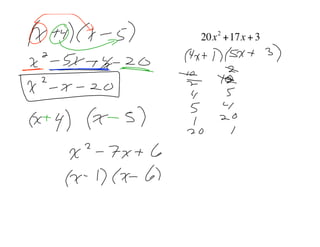 (x+4)(x-5)
x²-5x+4x-20
x²-x-20
(x+4) (x-5)
x²-7x+6
(x-1)(x-6)
20x²+17x+3
(4x+1)(5x+3)
4 5
5 4
1 20
20 1